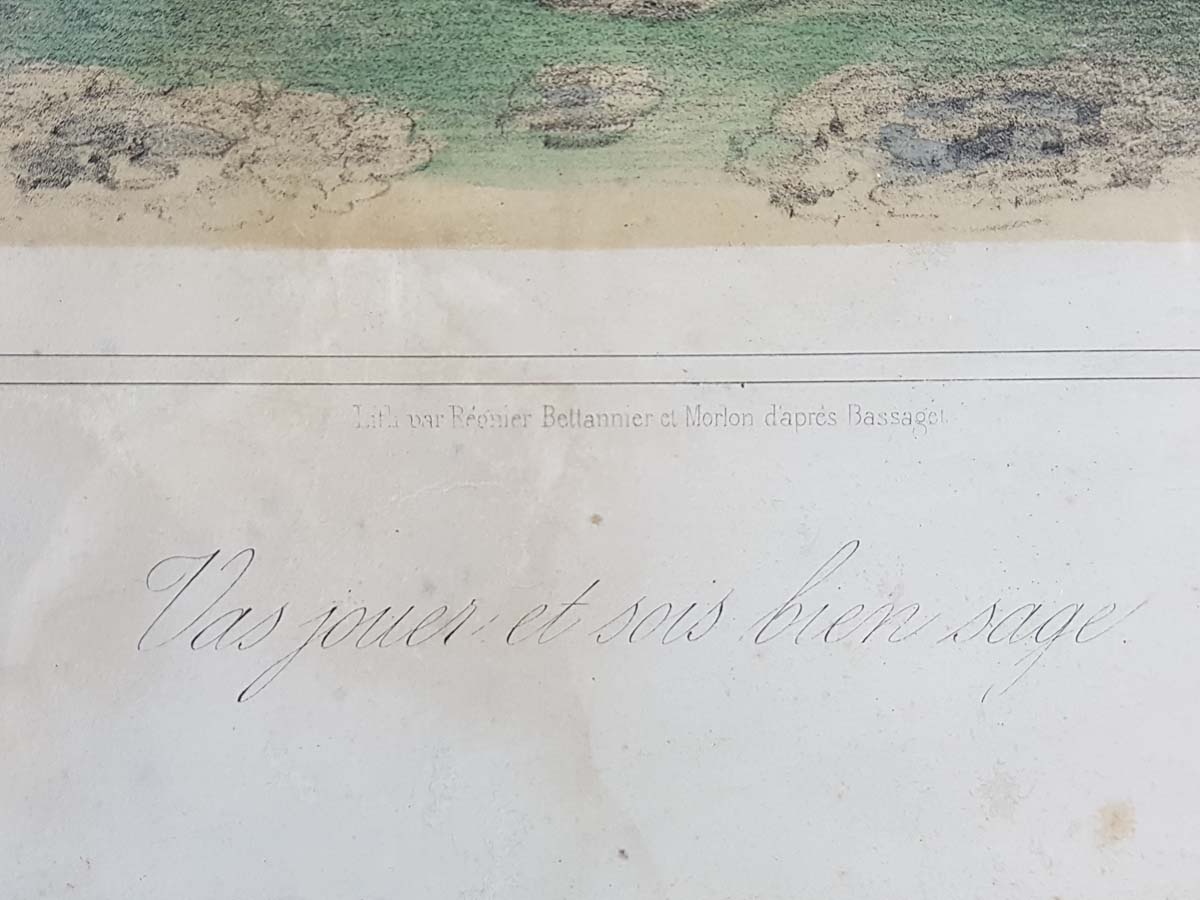 Lith par Régnier Bettannier et Morlon d'après Bassaget.
Vas jouer et sois bien sage.